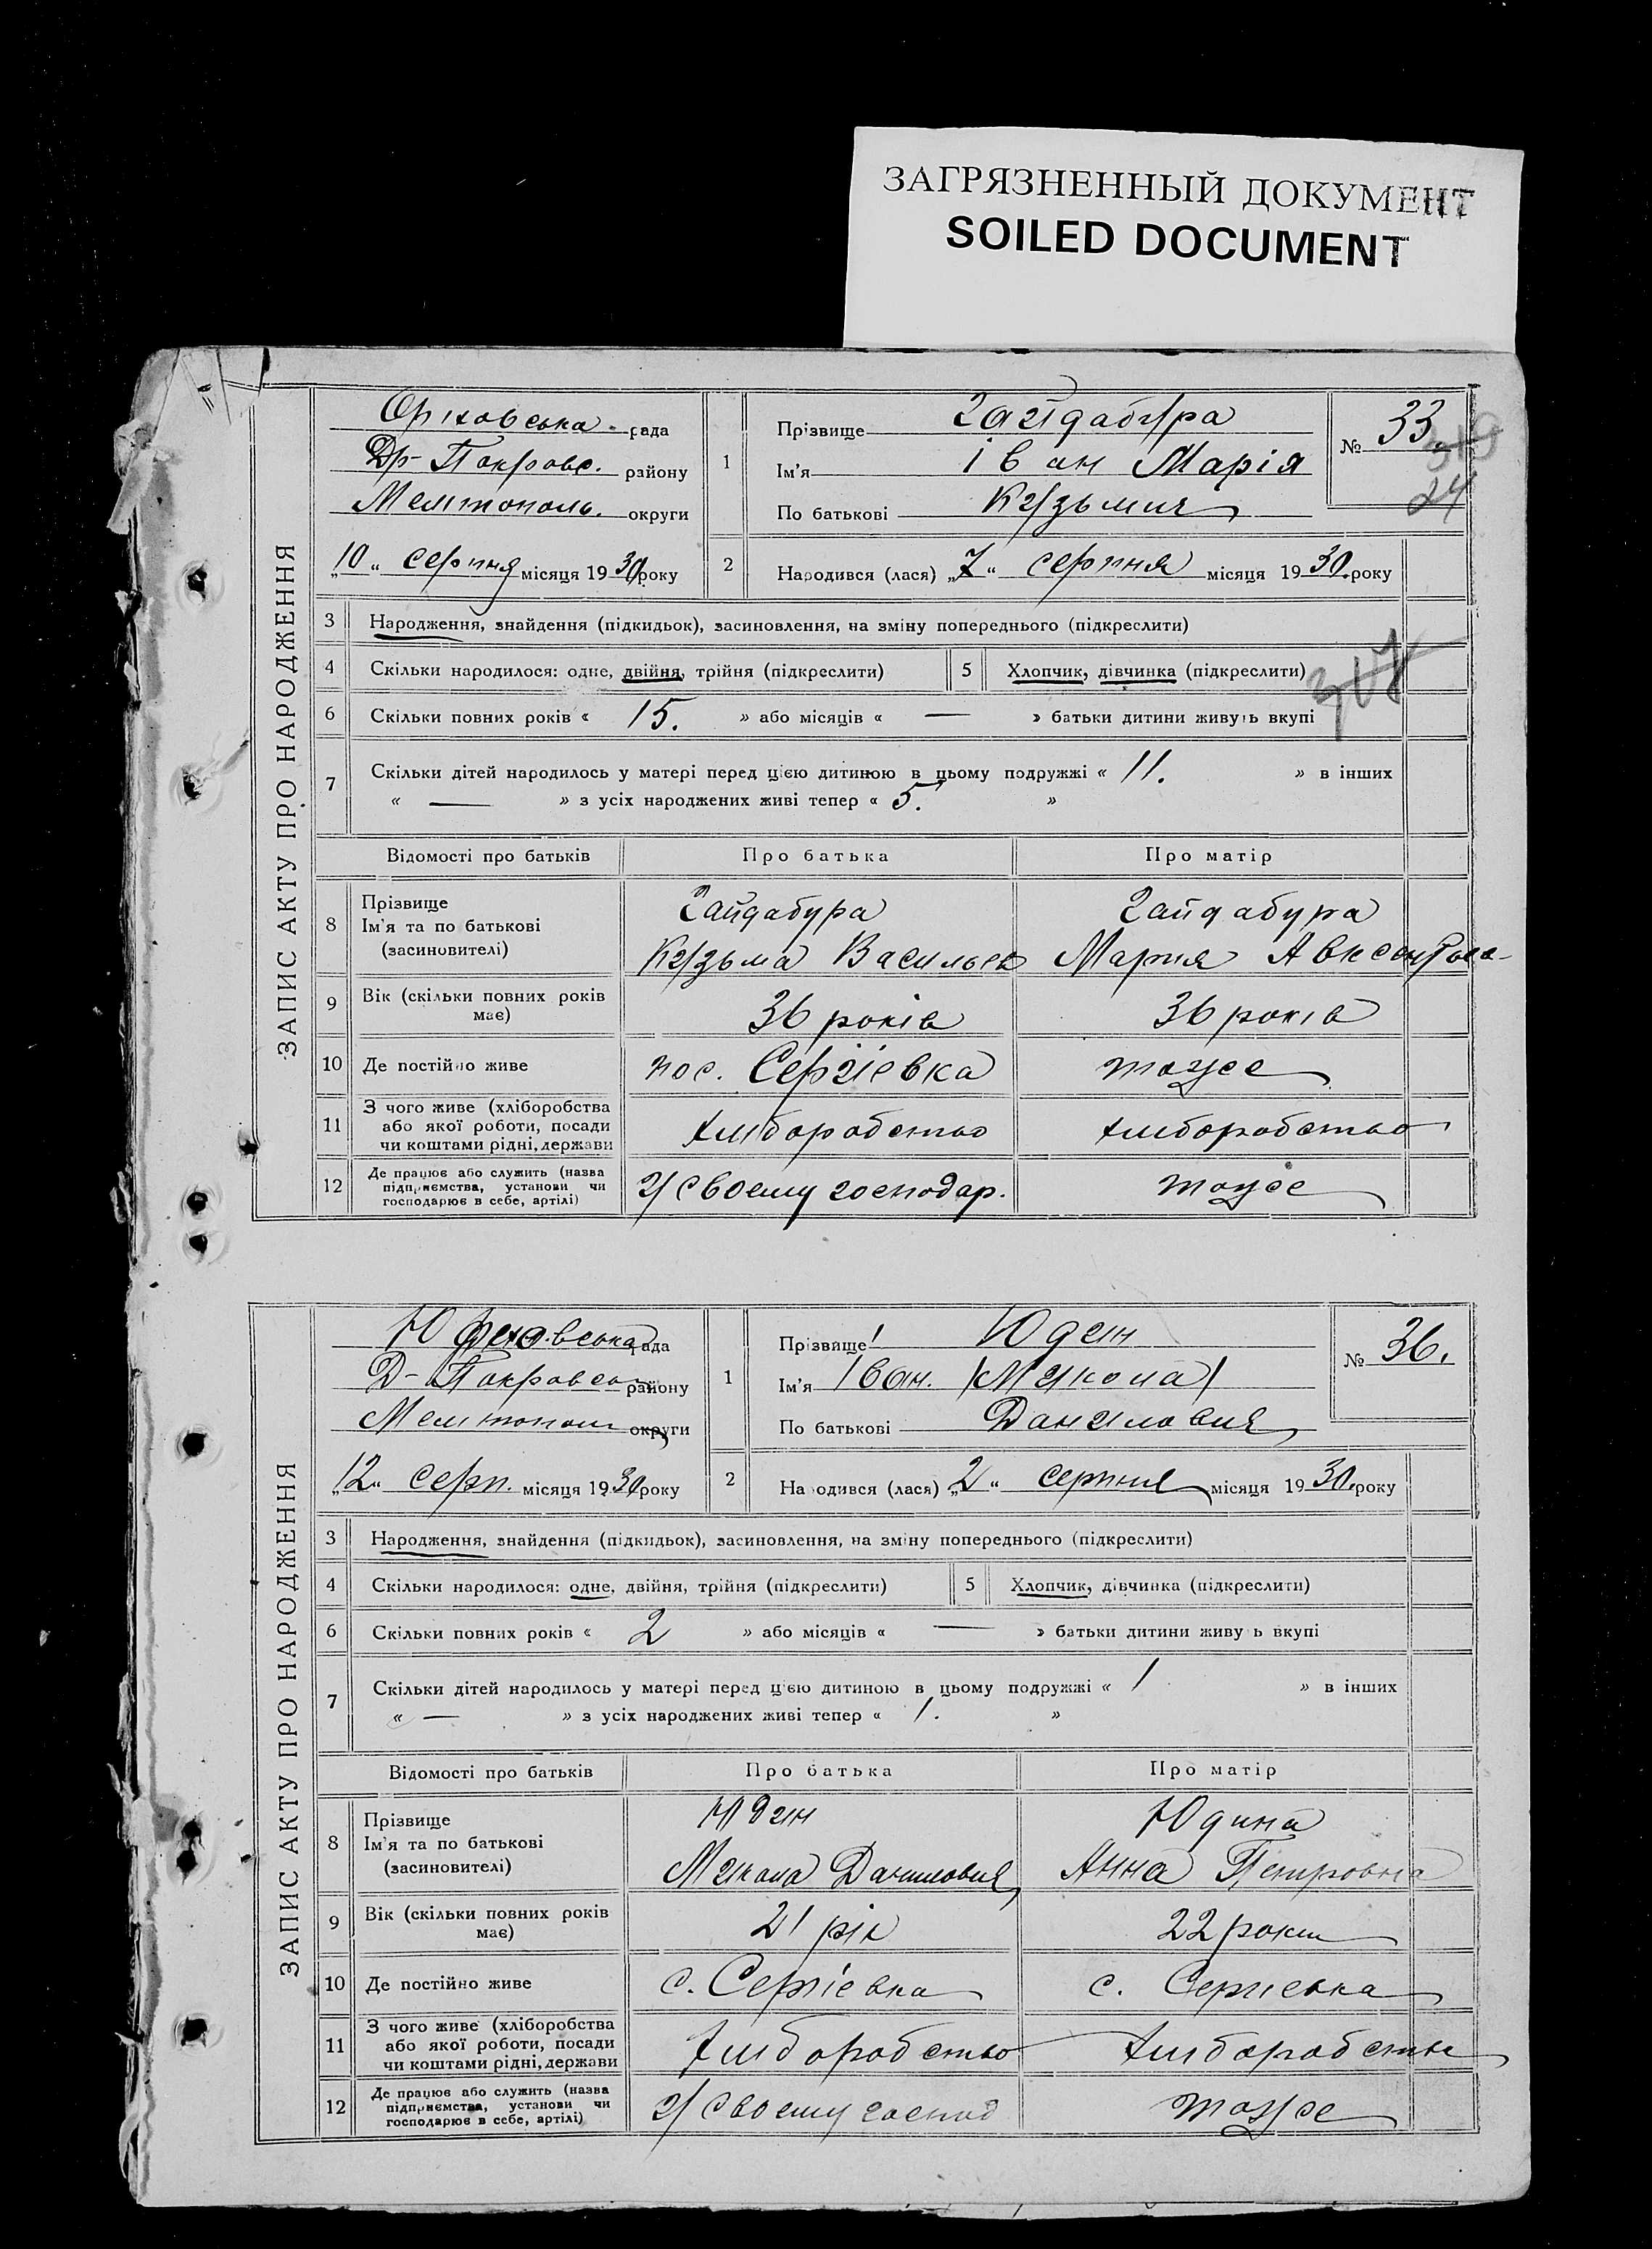 ЗАГРЯЗНЕННЫЙ ДОКУМЕНТ
SOILED DOCUMENT
ЗАПИС АКТУ ПРО НАРОДЖЕННЯ
Оріховська рада
Др-Покровс. району
Мелітополь. округи
„10“ серпня місяця 1930 року
1
Прізвище Гайдабура
Ім'я Іван Марія
По батькові Кузьмич
№ 33
319
24
2 Народився (лася) „7“ серпня місяця 1930. року
3 Народження, знайдення (підкидьок), засиновлення, на зміну попереднього (підкреслити)
4 Скільки народилося: одне, двійня, трійня (підкреслити) 5 Хлопчик, дівчинка (підкреслити)
317
6 Скільки повних років « 15. » або місяців « — » батьки дитини живуть вкупі
7 Скільки дітей народилось у матері перед цією дитиною в цьому подружжі « 11. » в інших
« — » з усіх народжених живі тепер « 5. »
Відомості про батьків Про батька Про матір
8 Прізвище Гайдабура Гайдабура
Ім'я та по батькові
(засиновителі) Кузьма Васильев Мария Авксентьев-
9 Вік (скільки повних років має) 36 років 36 років
10 Де постійно живе пос. Сергіевка тоже
11 З чого живе (хліборобства
або якої роботи, посади хліборобство хліборобство
чи коштами рідні, держави
12 Де працює або служить (назва
підприємства, установи чи У своему господар. тоже
господарює в себе, артілі)
ЗАПИС АКТУ ПРО НАРОДЖЕННЯ
рада
Д-Покровсь району
Мелітополь округи
„12“ серп. місяця 1930 року
1
Прізвище Юдин
Ім'я Іван. /Микола/
По батькові Данилович
№ 36.
2 Народився (лася) „2“ серпня місяця 1930. року
3 Народження, знайдення (підкидьок), засиновлення, на зміну попереднього (підкреслити)
4 Скільки народилося: одне, двійня, трійня (підкреслити) 5 Хлопчик, дівчинка (підкреслити)
6 Скільки повних років « 2 » або місяців « — » батьки дитини живуть вкупі
7 Скільки дітей народилось у матері перед цією дитиною в цьому подружжі « 1 » в інших
« — » з усіх народжених живі тепер « 1. »
Відомості про батьків Про батька Про матір
8 Прізвище Юдин Юдина
Ім'я та по батькові
(засиновителі) Микола Данилович Анна Петровна
9 Вік (скільки повних років має) 21 рік 22 роки
10 Де постійно живе с. Сергіевка с. Сергиевка
11 З чого живе (хліборобства
або якої роботи, посади хліборобство хліборобство
чи коштами рідні, держави
12 Де працює або служить (назва
підприємства, установи чи У своему господ тоже
господарює в себе, артілі)